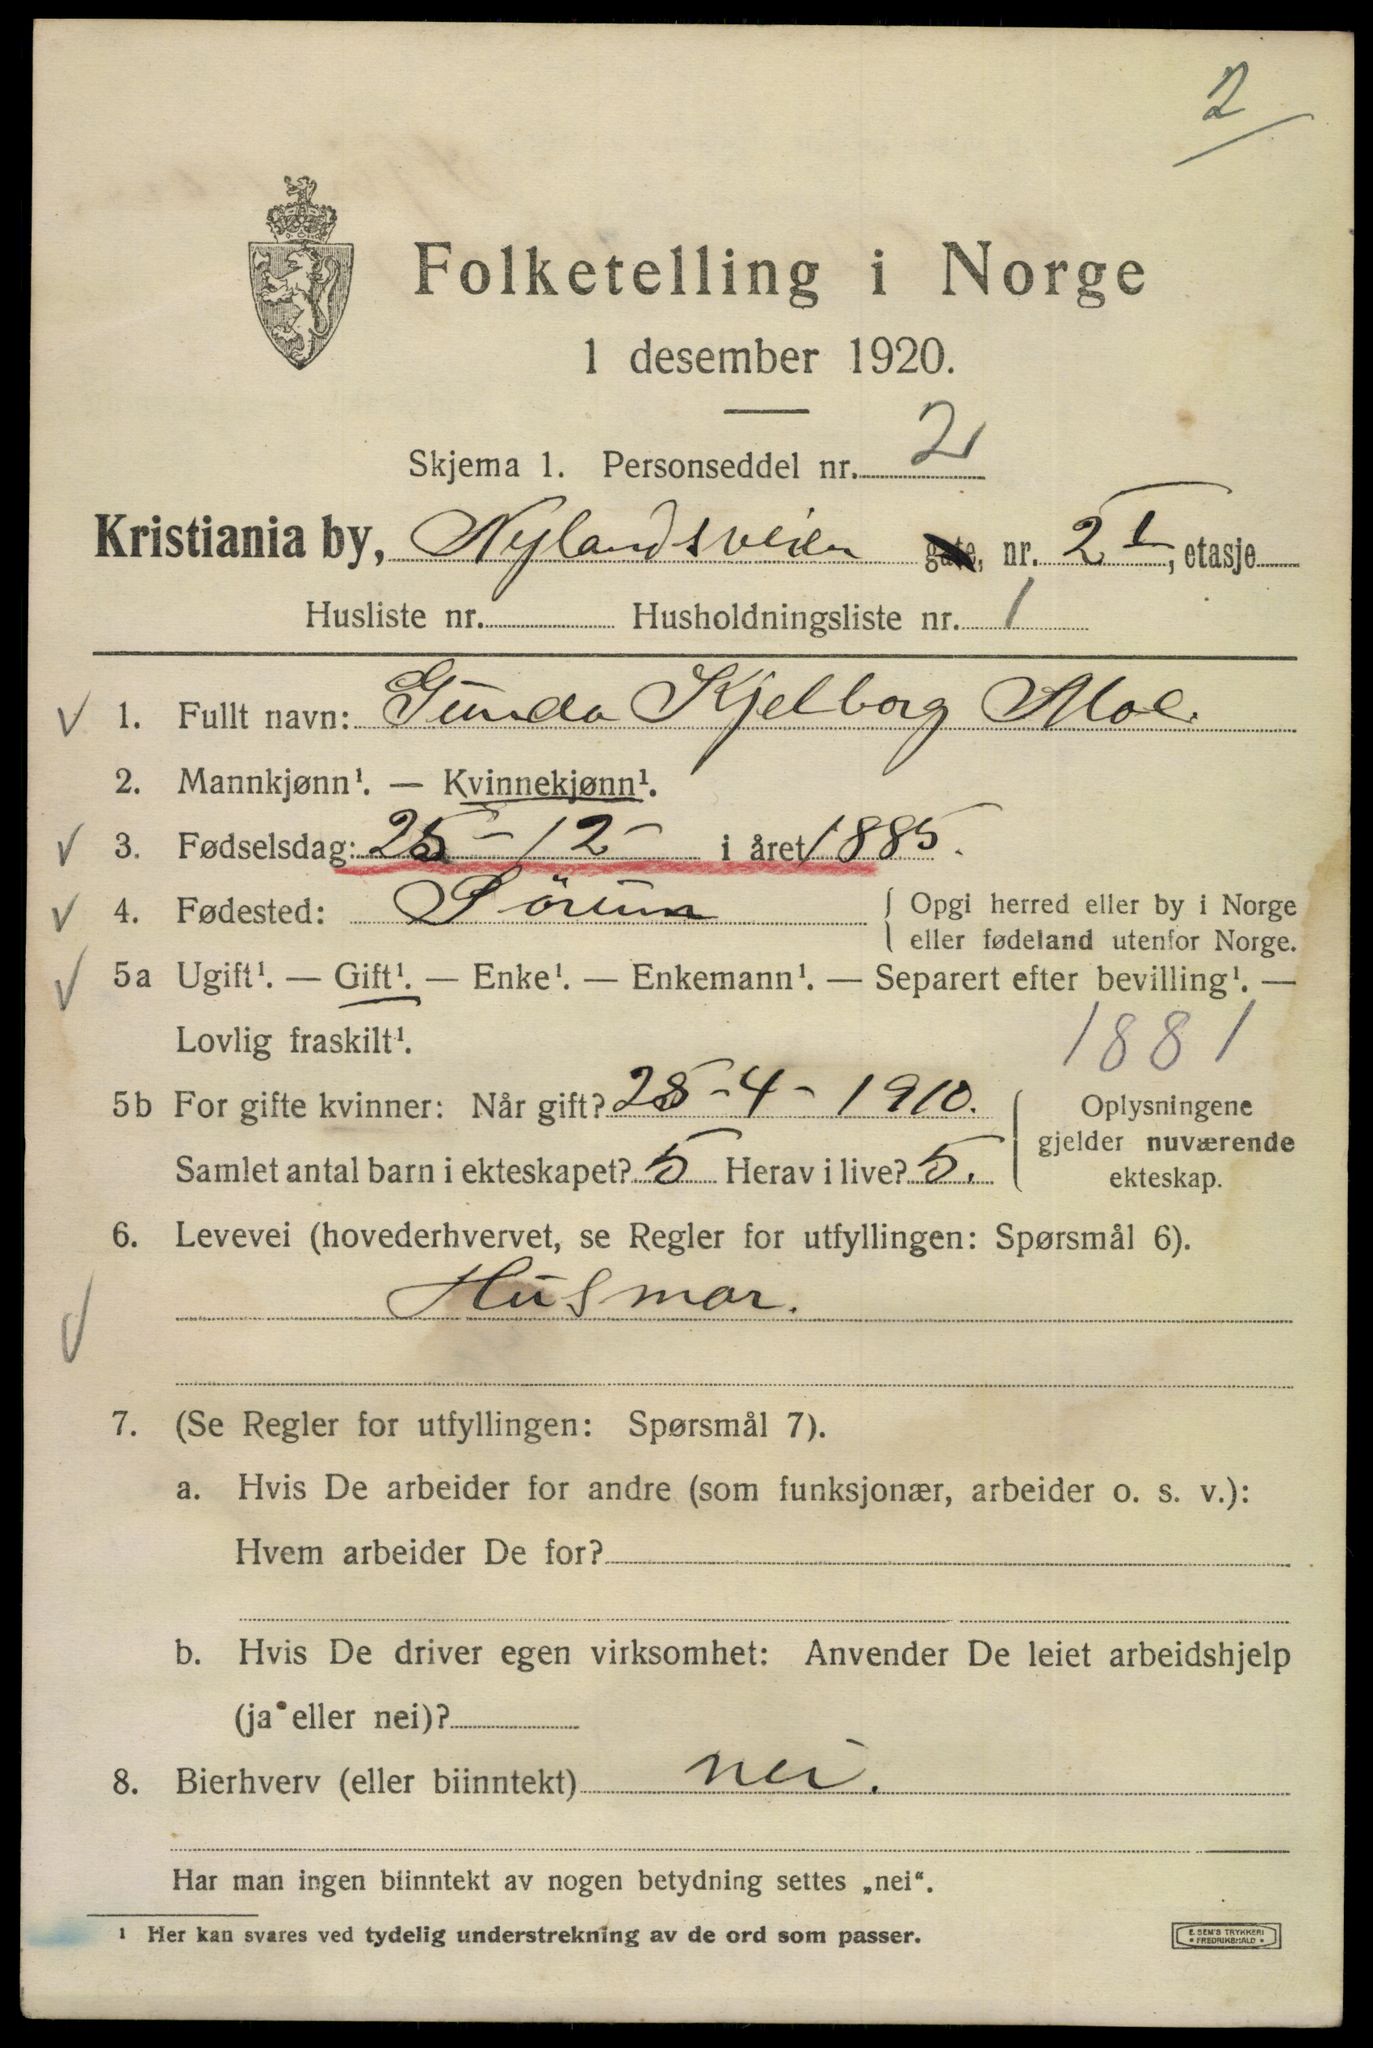 2
Folketelling i Norge
1 desember 1920.
Skjema 1. Personseddel nr. 2
Kristiania by, Nylandsveien gate, nr. 2 I, etasje
Husliste nr. Husholdningsliste nr. 1
1. Fullt navn: Gunda Kjelborg Moe.
2. Mannkjønn¹. — Kvinnekjønn¹.
3. Fødselsdag: 25-12- i året 1885.
4. Fødested: Sørum { Opgi herred eller by i Norge
eller fødeland utenfor Norge.
5a Ugift¹. — Gift¹. — Enke¹. — Enkemann¹. — Separert efter bevilling¹. —
Lovlig fraskilt¹. 1881
5b For gifte kvinner: Når gift? 25-4-1910. { Oplysningene
gjelder nuværende
Samlet antal barn i ekteskapet? 5 Herav i live? 5. ekteskap.
6. Levevei (hovederhvervet, se Regler for utfyllingen: Spørsmål 6).
Husmor.
7. (Se Regler for utfyllingen: Spørsmål 7).
a. Hvis De arbeider for andre (som funksjonær, arbeider o. s. v.):
Hvem arbeider De for?
b. Hvis De driver egen virksomhet: Anvender De leiet arbeidshjelp
(ja eller nei)?
8. Bierhverv (eller biinntekt) nei.
Har man ingen biinntekt av nogen betydning settes „nei“.
¹ Her kan svares ved tydelig understrekning av de ord som passer.
E. SEM'S TRYKKERI
• FREDRIKSHALD •